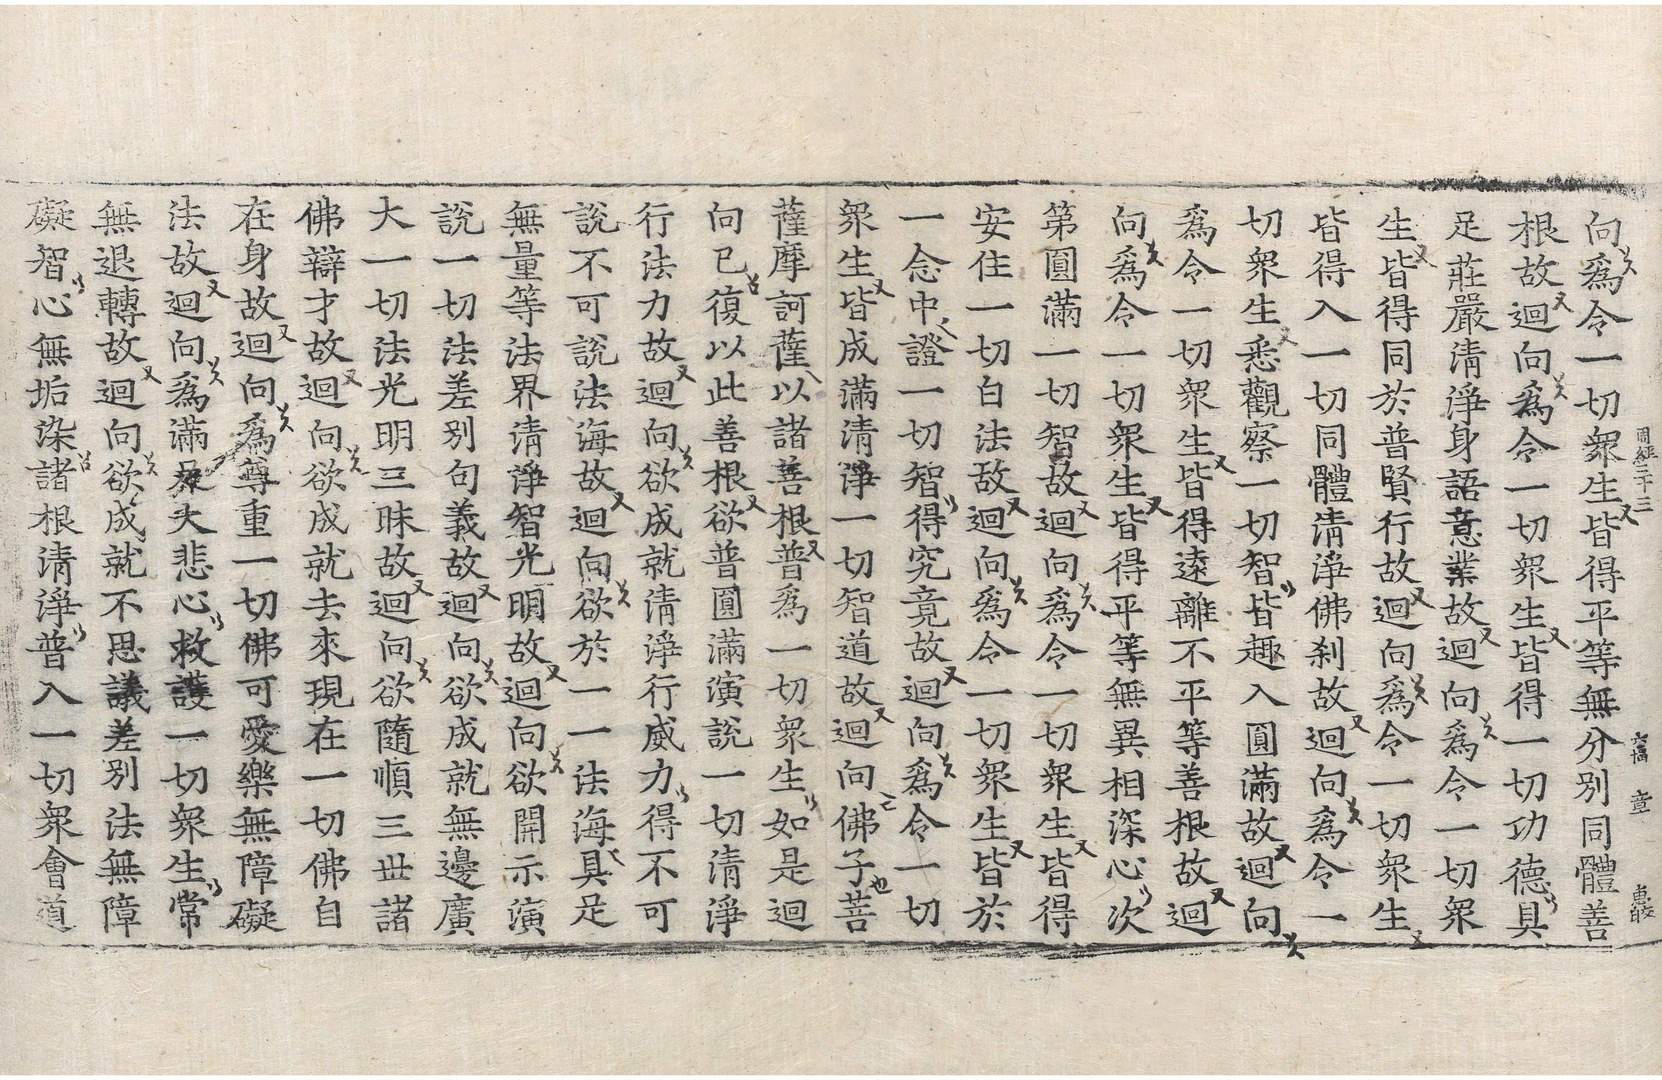 向爲令一切衆生皆得平等無分別同體善
根故迴向爲令一切衆生皆得一切功德具
足莊嚴淸淨身語意業故迴向爲令一切衆
生皆得同於普賢行故迴向爲令一切衆生
皆得入一切同體淸淨佛刹故迴向爲令一
切衆生悉觀察一切智皆趣入圓滿故迴向
爲令一切衆生皆得遠離不平等善根故迴
向爲令一切衆生皆得平等無異相深心次
第圓滿一切智故迴向爲令一切衆生皆得
安住一切白法故迴向爲令一切衆生皆於
一念中證一切智得究竟故迴向爲令一切
衆生皆成滿淸淨一切智道故迴向佛子菩
薩摩訶薩以諸善根普爲一切衆生如是迴
向已復以此善根欲普圓滿演說一切淸淨
行法力故迴向欲成就淸淨行威力得不可
說不可說法海故迴向欲於一一法海具足
無量等法界淸淨智光明故迴向欲開示演
說一切法差別句義故迴向欲成就無邊廣
大一切法光明三昧故迴向欲隨順三世諸
佛辯才故迴向欲成就去來現在一切佛自
在身故迴向爲尊重一切佛可愛樂無障礙
法故迴向爲滿足大悲心救護一切衆生常
無退轉故迴向欲成就不思議差別法無障
礙智心無垢染諸根淸淨普入一切衆會道